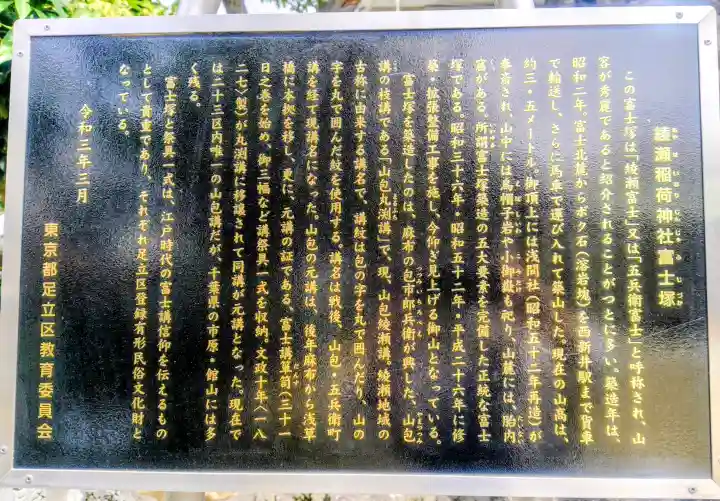 綾瀬稲荷神社富士塚
この富士塚は「綾瀬富士」又は「五兵衛富士」と呼称され、山
容が秀麗であると紹介されることがつとに多い。築造年は、
昭和二年。富士北麓からボク石(溶岩塊)を西新井駅まで貨車
で輸送し、さらに馬車で運び入れて築山した。現在の山高は、
約三・五メートル。御頂上には浅間社(昭和五十二年再造)が
奉斎され、山中には烏帽子岩や小御嶽も祀り、山麓には、胎内
窟がある。所謂富士塚築造の五大要素を完備した正統な富士
塚である。昭和三十六年・昭和五十二年・平成二十六年に修
築・拡張整備工事を施し、今仰ぎ見上げる御山となっている。
富士塚を築造したのは、麻布の包市郎兵衛が興した、山包
講の枝講である「山包丸渕講」で、現、山包綾瀬講。綾瀬地域の
古称に由来する講名で、講紋は包の字を丸で囲んだり、山の
字を丸で囲んだ紋を使用する。講名は戦後、山包・五兵衛町
講を経て現講名になった。山包の元講は、後年麻布から浅草
橋に本拠を移し、更に、元講の証である、富士講箪笥(三十一
日之巻を始め、御三幅など講祭具一式を収納。文政十年〈一八
二七〉製)が丸渕講に移譲されて同講が元講となった。現在で
は二十三区内唯一の山包講だが、千葉県の市原・館山には多
く残る。
富士塚と祭具一式は、江戸時代の富士講信仰を伝えるもの
として貴重であり、それぞれ足立区登録有形民俗文化財と
なっている。
令和三年三月
東京都足立区教育委員会